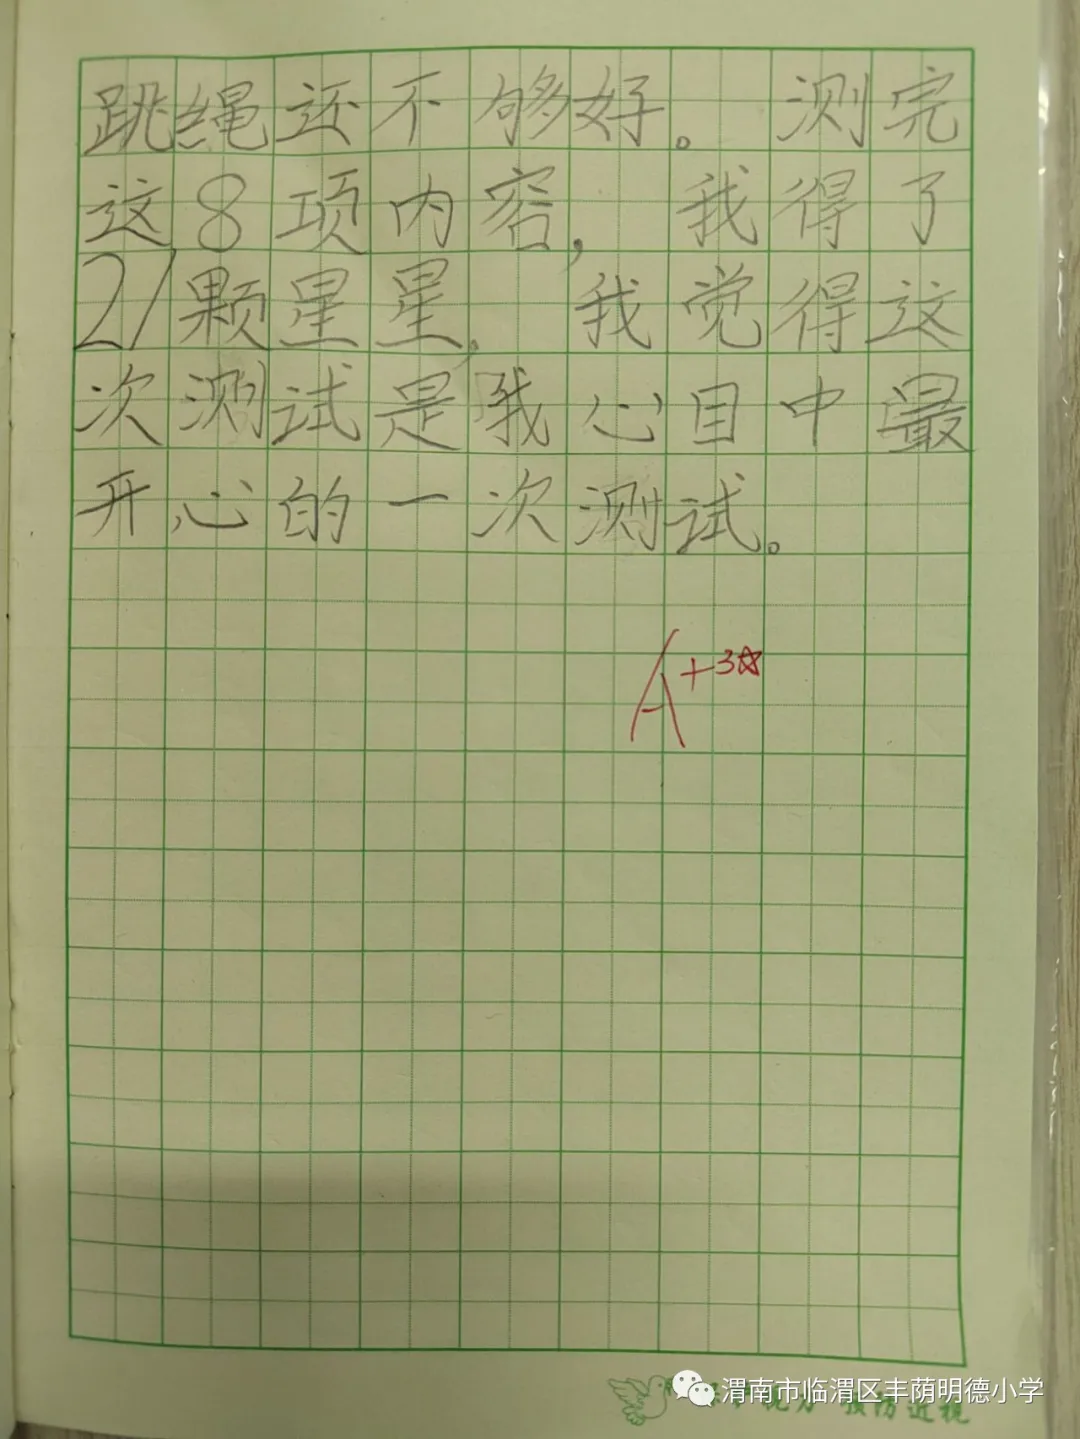 跳绳还不够好。 测完
这8项内容, 我得了
21颗星星, 我觉得这
次测试是我心目中最
开心的一次测试。
A+3☆
渭南市临渭区丰荫明德小学
预防近视